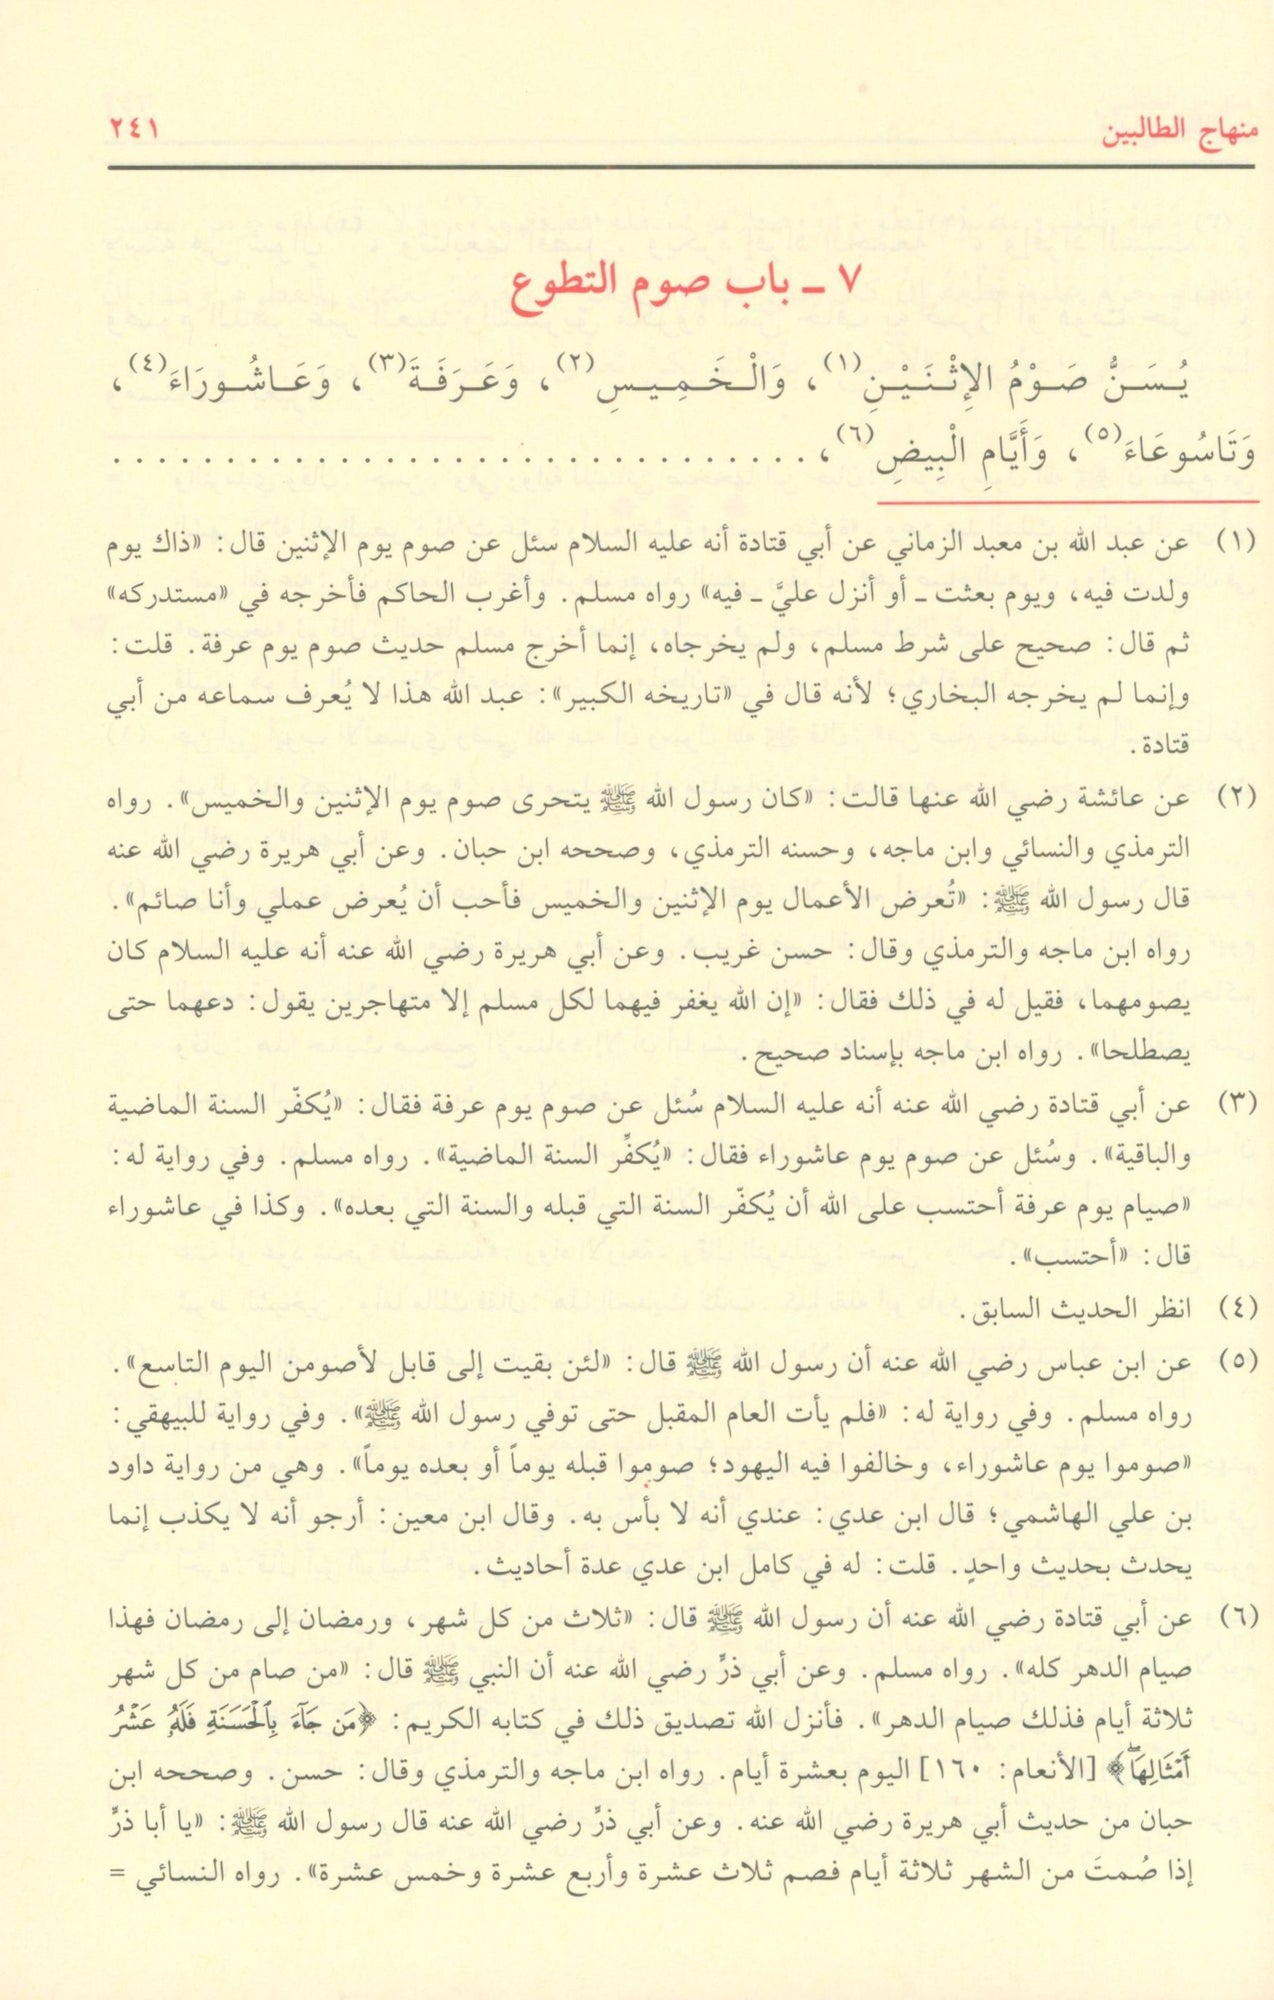 منهاج الطالبين ٢٤١
٧ ـ باب صوم التطوع
يُسَنُّ صَوْمُ الإِثْنَيْنِ(١)، وَالْخَمِيسِ(٢)، وَعَرَفَةَ(٣)، وَعَاشُورَاءَ(٤)،
وَتَاسُوعَاءَ(٥)، وَأَيَّامِ الْبِيضِ(٦)، . . . . . . . . . . . . . . . . . . . . . . . . . . . . . .
(١) عن عبد الله بن معبد الزماني عن أبي قتادة أنه عليه السلام سئل عن صوم يوم الإثنين قال: «ذاك يوم
ولدت فيه، ويوم بعثت ـ أو أنزل عليَّ ـ فيه» رواه مسلم. وأغرب الحاكم فأخرجه في «مستدركه»
ثم قال: صحيح على شرط مسلم، ولم يخرجاه، إنما أخرج مسلم حديث صوم يوم عرفة. قلت:
وإنما لم يخرجه البخاري؛ لأنه قال في «تاريخه الكبير»: عبد الله هذا لا يُعرف سماعه من أبي
قتادة.
(٢) عن عائشة رضي الله عنها قالت: «كان رسول الله ﷺ يتحرى صوم يوم الإثنين والخميس». رواه
الترمذي والنسائي وابن ماجه، وحسنه الترمذي، وصححه ابن حبان. وعن أبي هريرة رضي الله عنه
قال رسول الله ﷺ: «تُعرض الأعمال يوم الإثنين والخميس فأحب أن يُعرض عملي وأنا صائم».
رواه ابن ماجه والترمذي وقال: حسن غريب. وعن أبي هريرة رضي الله عنه أنه عليه السلام كان
يصومهما، فقيل له في ذلك فقال: «إن الله يغفر فيهما لكل مسلم إلا متهاجرين يقول: دعهما حتى
يصطلحا». رواه ابن ماجه بإسناد صحيح.
(٣) عن أبي قتادة رضي الله عنه أنه عليه السلام سُئل عن صوم يوم عرفة فقال: «يُكفّر السنة الماضية
والباقية». وسُئل عن صوم يوم عاشوراء فقال: «يُكفِّر السنة الماضية». رواه مسلم. وفي رواية له:
«صيام يوم عرفة أحتسب على الله أن يُكفّر السنة التي قبله والسنة التي بعده». وكذا في عاشوراء
قال: «أحتسب».
(٤) انظر الحديث السابق.
(٥) عن ابن عباس رضي الله عنه أن رسول الله ﷺ قال: «لئن بقيت إلى قابل لأصومن اليوم التاسع».
رواه مسلم. وفي رواية له: «فلم يأت العام المقبل حتى توفي رسول الله ﷺ». وفي رواية للبيهقي:
«صوموا يوم عاشوراء، وخالفوا فيه اليهود؛ صوموا قبله يوماً أو بعده يوماً». وهي من رواية داود
بن علي الهاشمي؛ قال ابن عدي: عندي أنه لا بأس به. وقال ابن معين: أرجو أنه لا يكذب إنما
يحدث بحديث واحدٍ. قلت: له في كامل ابن عدي عدة أحاديث.
(٦) عن أبي قتادة رضي الله عنه أن رسول الله ﷺ قال: «ثلاث من كل شهر، ورمضان إلى رمضان فهذا
صيام الدهر كله». رواه مسلم. وعن أبي ذرٍّ رضي الله عنه أن النبي ﷺ قال: «من صام من كل شهر
ثلاثة أيام فذلك صيام الدهر». فأنزل الله تصديق ذلك في كتابه الكريم: ﴿مَن جَآءَ بِٱلْحَسَنَةِ فَلَهُۥ عَشْرُ
أَمْثَالِهَا﴾ [الأنعام: ١٦٠] اليوم بعشرة أيام. رواه ابن ماجه والترمذي وقال: حسن. وصححه ابن
حبان من حديث أبي هريرة رضي الله عنه. وعن أبي ذرٍّ رضي الله عنه قال رسول الله ﷺ: «يا أبا ذرٍّ
إذا صُمتَ من الشهر ثلاثة أيام فصم ثلاث عشرة وأربع عشرة وخمس عشرة». رواه النسائي =